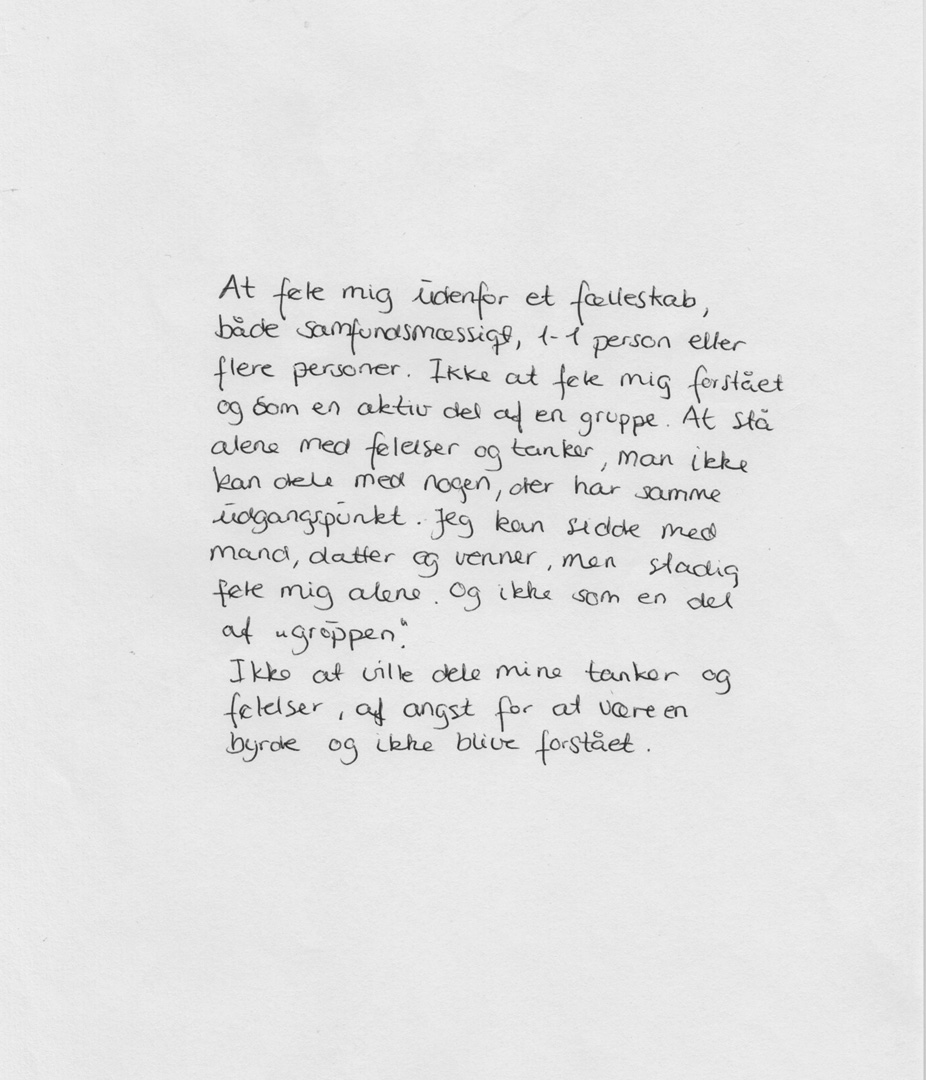 At føle mig udenfor et fælleskab,
både samfundsmæssigt, 1-1 person eller
flere personer. Ikke at føle mig forstået
og som en aktiv del af en gruppe. At stå
alene med følelser og tanker, man ikke
kan dele med nogen, der har samme
udgangspunkt. Jeg kan sidde med
mand, datter og venner, men stadig
føle mig alene. Og ikke som en del
af "gruppen".
Ikke at ville dele mine tanker og
følelser, af angst for at være en
byrde og ikke blive forstået.